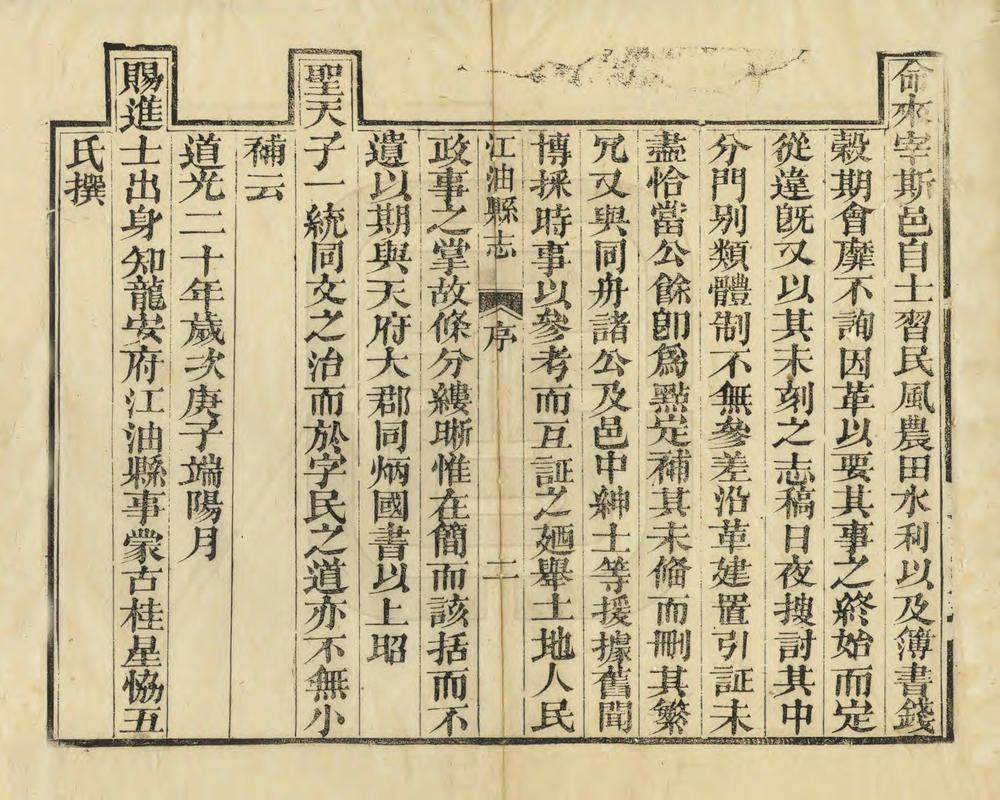 命來宰斯邑自士習民風農田水利以及簿書錢
穀期會靡不詢因革以要其事之終始而定
從違旣又以其未刻之志稿日夜搜討其中
分門别類體制不無參差沿革建置引証未
盡恰當公餘卽爲㸃定補其未備而刪其繁
冗又與同舟諸公及邑中紳士等援據舊聞
博採時事以參考而互証之廼舉土地人民
江油縣志 序 二
政事之掌故條分縷晰惟在簡而該括而不
遺以期與天府大郡同炳國書以上昭
聖天子一統同文之治而於字民之道亦不無小
補云
道光二十年歲次庚子端陽月
賜進士出身知龍安府江油縣事蒙古桂星恊五
氏撰